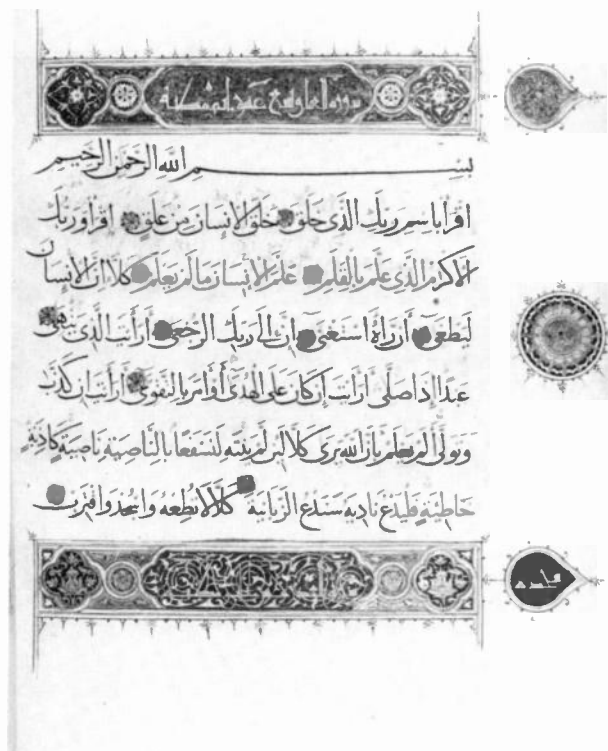 سورة
بسم الله الرحمن الرحيم
اقرا باسم ربك الذى خلق خلق الإنسان من علق اقرا وربك
الأكرم الذى علم بالقلم علم الإنسان ما لم يعلم كلا ان الإنسان
ليطغى أن رآه استغنى إن إلى ربك الرجعى أرأيت الذى ينهى
عبدا إذا صلى أرأيت إن كان على الهدى أو أمر بالتقوى أرأيت إن كذب
وتولى ألم يعلم بأن الله يرى كلا لئن لم ينته لنسفعا بالناصية ناصية كاذبة
خاطئة فليدع ناديه سندع الزبانية كلا لا تطعه واسجد واقترب
سجدة